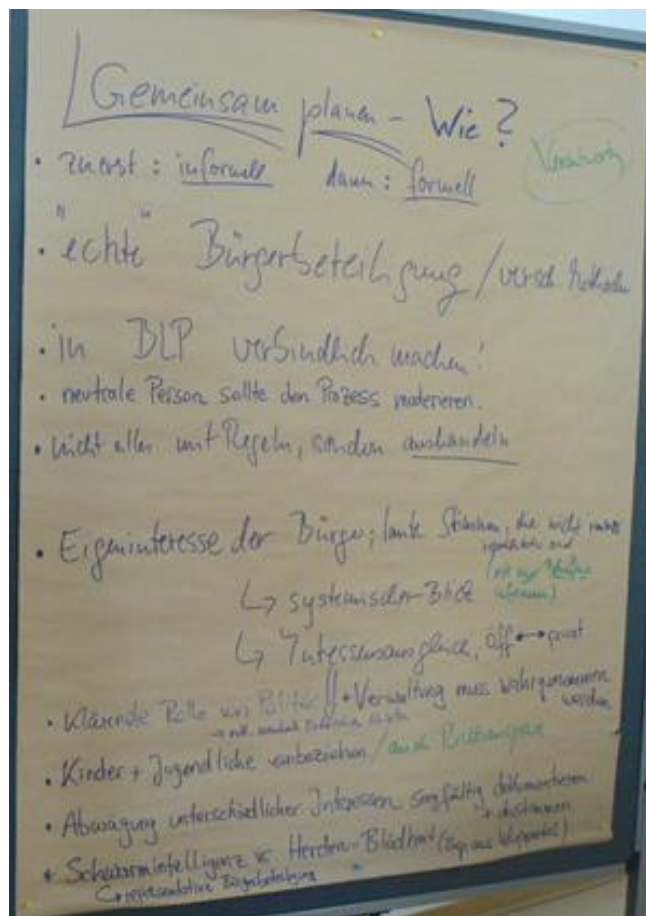 Gemeinsam planen - Wie?
• zuerst : informell dann : formell
• "echte" Bürgerbeteiligung / versch. Methoden
• in BLP verbindlich machen!
• neutrale Person sollte den Prozess moderieren.
• nicht alles mit Regeln, sondern aushandeln
• Eigeninteresse der Bürger; laute Stimmen, die nicht immer
repräsentativ sind
↳ systemischer Blick
↳ Interessensausgleich, öff ↔ privat
• Klärende Rolle von Politik + Verwaltung muss wahrgenommen
werden
• Kinder + Jugendliche einbeziehen / auch
• Abwägung unterschiedlicher Interessen sorgfältig dokumentieren
+ abstimmen
• Schwarmintelligenz vs Herden-Blödheit (Bsp. aus Wuppertal)
↳ repräsentative Bürgerbeteiligung